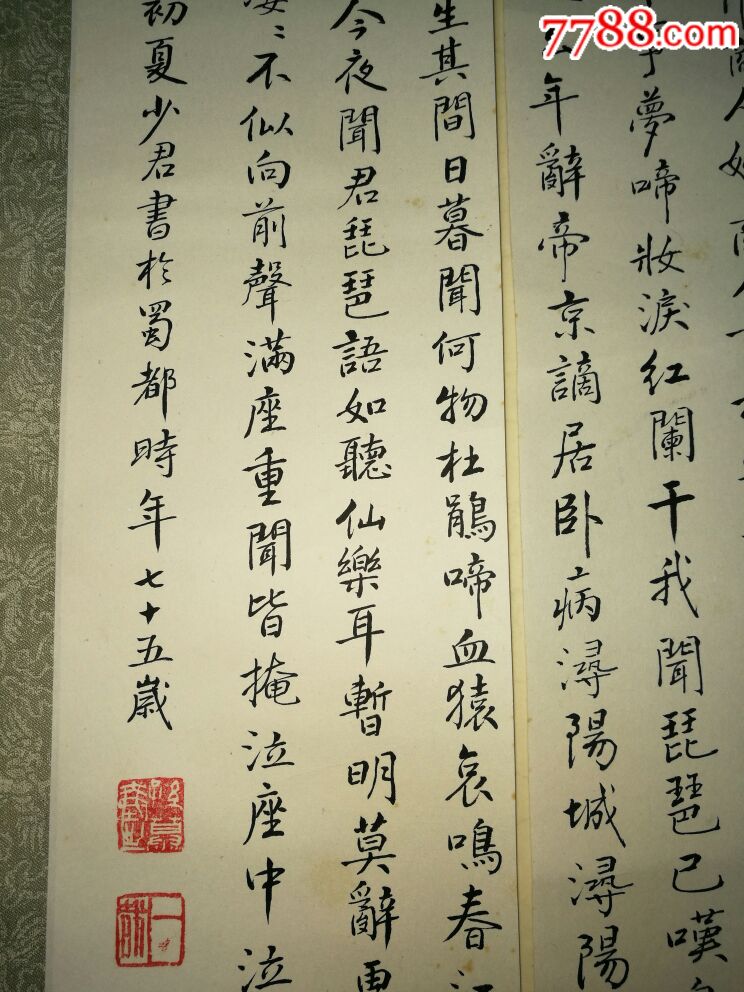 7788.com
商人婦
夢啼妝淚紅闌干我聞琵琶已嘆
年辭帝京謫居卧病潯陽城潯陽
生其間日暮聞何物杜鵑啼血猿哀鳴春江
今夜聞君琵琶語如聽仙樂耳暫明莫辭更
不似向前聲滿座重聞皆掩泣座中泣
初夏少君書於蜀都時年七十五歲